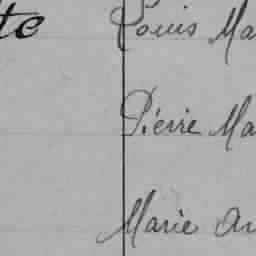 te Louis Ma
Pierre Ma
Marie An